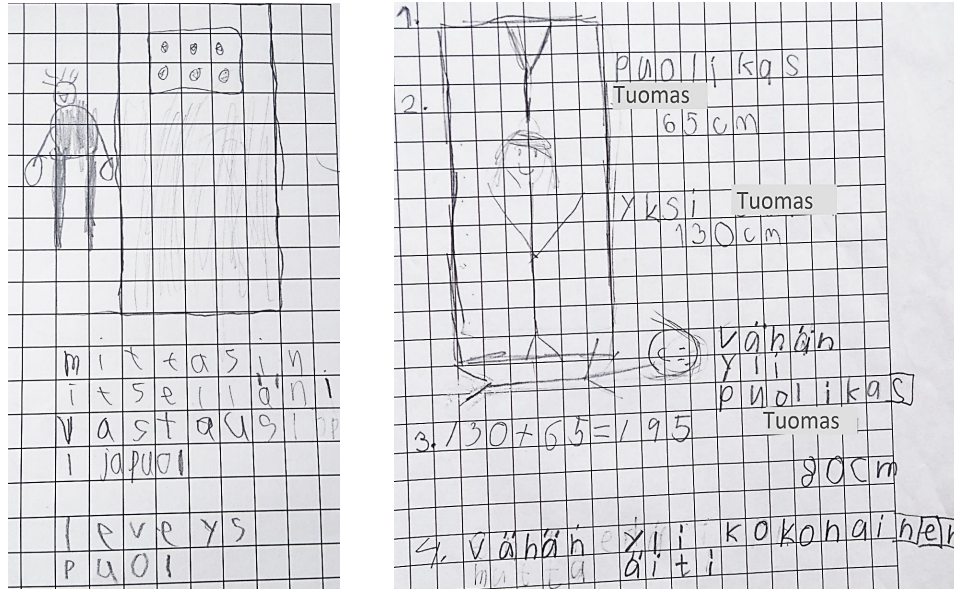 mittasin
itselläni
vastaus
1 ja puol
leveys
puol
1.
puolikas
Tuomas
2.
65 cm
yksi Tuomas
130 cm
vähän
yli
puolikas
Tuomas
3. 130+65=195
80cm
4. vähän yli kokonainen
mutta äiti